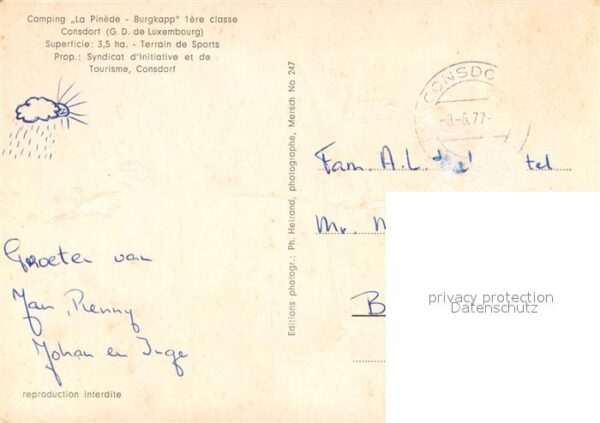 Camping „La Pinède - Burgkapp" 1ère classe
Consdorf (G. D. de Luxembourg)
Superficie: 3,5 ha. - Terrain de Sports
Prop.: Syndicat d'Initiative et de
Tourisme, Consdorf
Groeten van
Jan, Renny
Johan en Inge
reproduction interdite
Editions photogr.: Ph. Heirand, photographe, Mersch No 247
CONSDO
-6.77-
Fam. A.L. tel
Mr.
B
privacy protection
Datenschutz